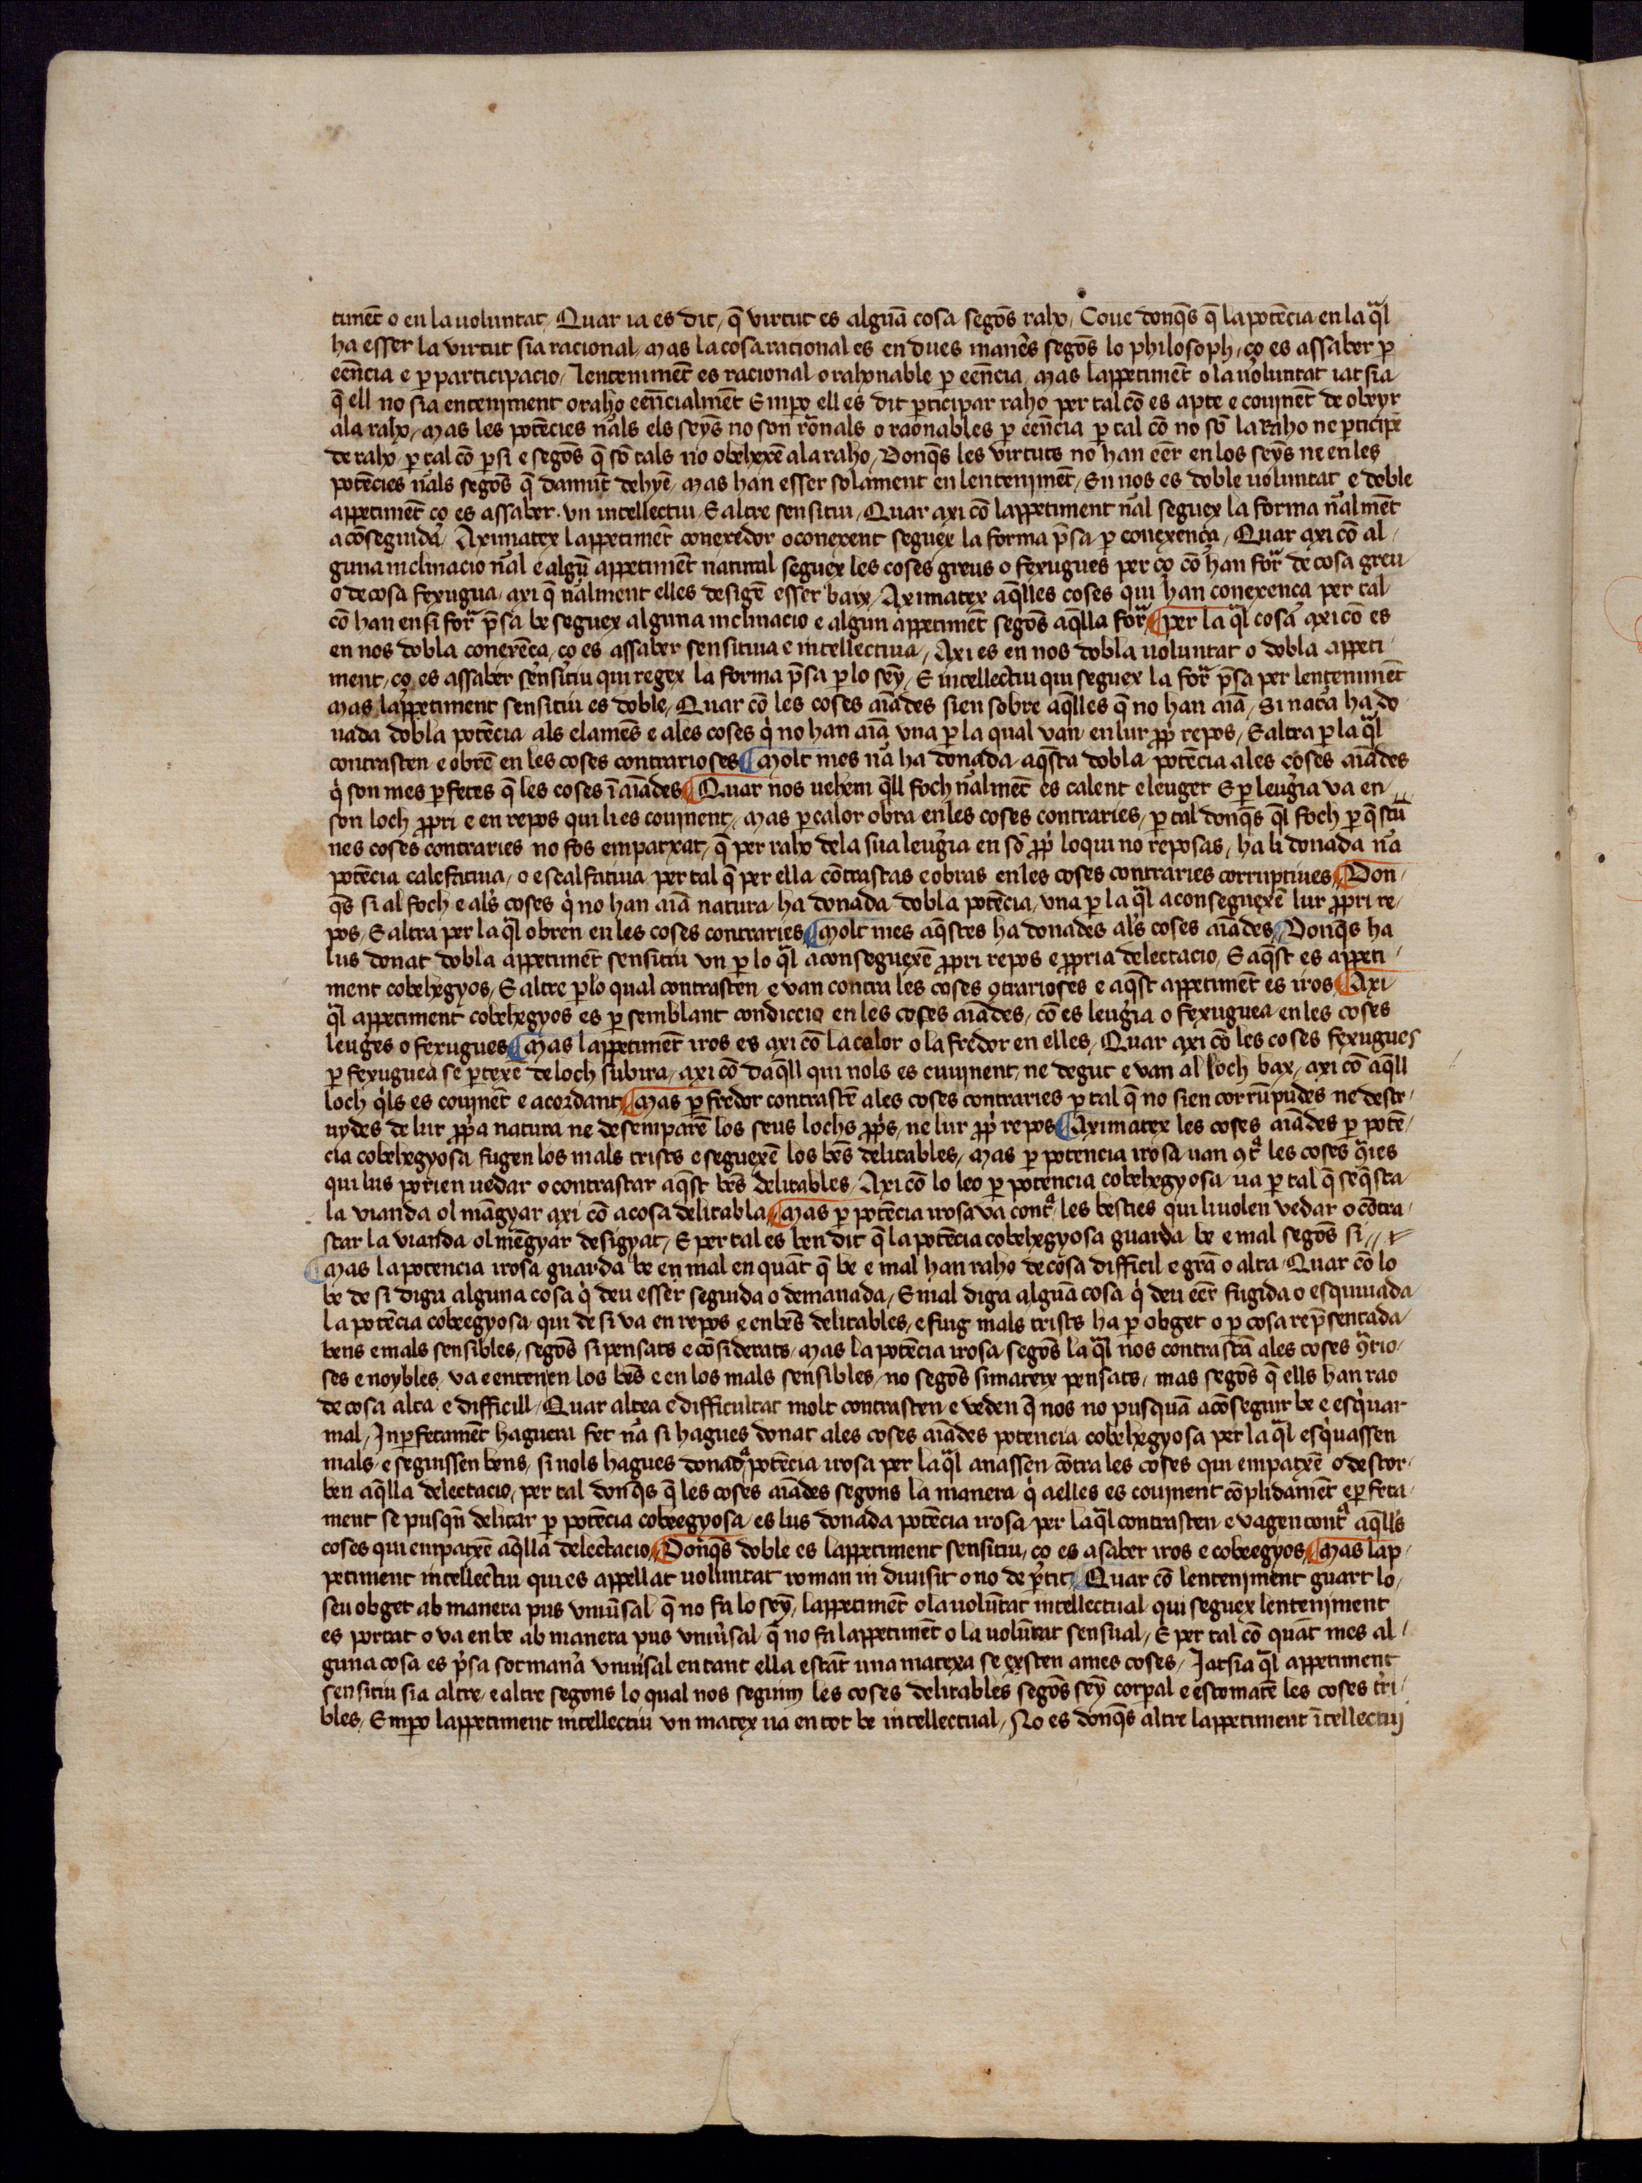 timēt o en la uoluntat / Quar ia es dit / q̄ virtut es alguā cosa segōs raho / Coue donq̄s q̄ la potēcia en la qͣl
ha esser la virtut sia racional / mas la cosa racional es en dues maneˀs segōs lo philosoph / ço es assaber ꝑ
eēncia e ꝑ participacio / lentenimēt es racional o rahonable ꝑ eēncia / mas lappetimēt o la uoluntat iat sia
q̄ ell no sia enteniment o raho eēncialmēt Empo ell es dit ꝑticipar raho per tal cō es apte e couinēt de obeyr
a la raho / mas les potēcies nͣals els seȳs no son rōnals o raonables ꝑ eēncia ꝑ tal cō no sō la raho ne ꝑticipē
de raho ꝑ tal cō ꝑ si e segōs q̄ sō tals no obehexē a la raho / Donq̄s les virtuts no han eēr en los seȳs ne en les
potēcies nͣals segōs q̄ damūt dehyē / mas han esser solament en lentenimēt / En nos es doble uoluntat e doble
appetimēt ço es assaber · vn intellectiu / E altre sensitiu / Quar axi cō lappetiment nͣal seguex la forma nͣalmēt
acōseguida / Aximatex lappetimēt conexedor o conexent seguex la forma p̄sa ꝑ conexença / Quar axi cō al /
guna inclinacio nͣal e algū appetimēt natural seguex les coses greus o fexugues per ço cō han forͣ de cosa greu
o de cosa fexugua / axi q̄ nͣalment elles desigē esser baix / Aximatex aq̄lles coses qui han conexença per tal
cō han en si forͣ p̄sa be seguex alguna inclinacio e algun appetimēt segōs aq̄lla forͣ / ¶ per la qͣl cosa axi cō es
en nos dobla conexēça / ço es assaber sensitiua e intellectiua / Axi es en nos dobla uoluntat o dobla appeti
ment / ço es assaber sensitiu qui regex la forma p̄sa ꝑ lo seȳ / E intellectiu qui seguex la forͣ p̄sa per lentenimēt
mas lappetiment sensitiu es doble / Quar cō les coses aīades sien sobre aq̄lles q̄ no han aīa / Si natͣa ha do
nada dobla potēcia als elamēs e ales coses qͥ no han aīa vna ꝑ la qual van en lur ꝓpˀ repos / E altra ꝑ la qͣl
contrasten e obrē en les coses contrarioses ¶ Molt mes nͣa ha donada aq̄sta dobla potēcia ales coses aīades
qͥ son mes ꝑfetes q̄ les coses ī aīades ¶ Quar nos uehem q̄ll foch nͣalmēt es calent e leuger E ꝑ leugˀia va en
son loch ꝓpri e en repos qui li es couinent / mas ꝑ calor obra en les coses contraries / ꝑ tal donq̄s q̄l foch ꝑ q̄stū
nes coses contraries no fos empatxat / q̄ per raho de la sua leugˀia en sō ꝓpˀ lo qui no reposas / ha li donada nͣa
potēcia calefatiua / o escalfatiua per tal q̄ per ella cōtrastas e obras en les coses contraries corruptiues ¶ Don
q̄s si al foch e alˀs coses qͥ no han aīa natura ha donada dobla potēcia / vna ꝑ la qͣl aconseguexē lur ꝓpri re /
pos / E altra per la qͣl obren en les coses contraries ¶ Molt mes aq̄stes ha donades alˀs coses aīades / Donq̄s ha
lus donat dobla appetimēt sensitiu vn ꝑ lo qͣl aconseguexē ꝓpri repos e ꝓpria delectacio / E aq̄st es appeti /
ment cobehegyos / E altre ꝑ lo qual contrasten e van contra les coses ꝯtrarioses e aq̄st appetimēt es iros ¶ Axi
qͣl appetiment cobehegyos es ꝑ semblant condiccio en les coses aīades / cō es leugˀia o fexuguea en les coses
leugˀes o fexugues ¶ Mas lappetimēt iros es axi cō la calor o la fredor en elles / Quar axi cō les coses fexugues
ꝑ fexuguea se ꝑtexē de loch subira / axi cō daq̄ll qui nols es couinent / ne degut e van al loch bax / axi cō aq̄ll
loch qͥls es couinēt e acordant ¶ Mas ꝑ fredor contrastē ales coses contraries ꝑ tal q̄ no sien corrūpudes ne destr /
uydes de lur ꝓpˀa natura ne desemparē los seus lochs ꝓpˀs / ne lur ꝓpˀ repos ¶ Aximatex les coses aīades ꝑ potē /
cia cobehegyosa fugen los mals trists e seguexē los bēs delitables / mas ꝑ potencia irosa van ꝯtͣ les coses ꝯͣies
qui lus porien uedar o contrastar aq̄st bēs delitables / Axi cō lo leo ꝑ potencia cobehegyosa va ꝑ tal q̄ seq̄sta
la vianda ol māgyar axi cō a cosa delitabla ¶ Mas ꝑ potēcia irosa va contͣ les besties qui li uolen vedar o cōtra /
star la vianda ol mēgyar desigyat / E per tal es ben dit q̄ la potēcia cobehegyosa guarda be e mal segōs si //
¶ Mas la potencia irosa guarda be en mal en quāt q̄ be e mal han raho de cosa difficil e grā o alta / Quar cō lo
be de si digu alguna cosa qͥ deu esser seguida o demanada / E mal diga alguā cosa qͥ deu eēr fugida o esquiuada
La potēcia cobeegyosa qui de si va en repos e en bēs delitables / e fuig mals trists ha ꝑ obget o ꝑ cosa rep̄sentada
bens e mals sensibles / segōs si pensats e cōsiderats / mas la potēcia irosa segōs la qͣl nos contrastā ales coses ꝯͣrio /
ses e noybles / va e enten en los bēs e en los mals sensibles / no segōs simateix pensats / mas segōs q̄ ells han rao
de cosa alta e difficill / Quar altea e difficultat molt contrasten e veden q̄ nos no pusquā acōseguir be e esqͥuar
mal / Inꝑfetamēt haguera fet nͣa si hagues donat ales coses aīades potencia cobehegyosa per la qͣl esqͥuassen
mals / e seguissen bens / si nols hagues donadͣ potēcia irosa per la qͣl anassen cōtra les coses qui empatxē o destor /
ben aq̄lla delectacio / per tal donq̄s q̄ les coses aīades segons la manera qͥ a elles es couinent cōplidamēt e ꝑfeta /
ment se pusqn̄ delitar ꝑ potēcia cobeegyosa / es lus donada potēcia irosa per la qͣl contrasten e vagen contͣ aq̄llˀs
coses qui empatxē aq̄lla delectacio ¶ Donq̄s doble es lappetiment sensitiu / ço es asaber iros e cobeegyos ¶ Mas lap /
petiment intellectiu qui es appellat uoluntat roman indiuisit o no deꝑtit / Quar cō lenteniment guart lo /
seu obget ab manera pus vniuˀsal q̄ no fa lo seȳ / lappetimēt o la uolūtat intellectual qui seguex lenteniment
es portat o va en be ab manera pus vniuˀsal q̄ no fa lappetimēt o la uolūtat sensual / E per tal cō quāt mes al /
guna cosa es pˀsa sot manˀa vniuˀsal en tant ella estāt una matexa se exsten a mes coses / Jatsia qͣl appetiment
sensitiu sia altre / e altre segons lo qual nos seguim les coses delitables segōs seȳ corꝑal e estomatē les coses tˀri /
bles / Empo lappetiment intellectiu vn matex va en tot be intellectual / No es donq̄s altre lappetiment ītellectiu